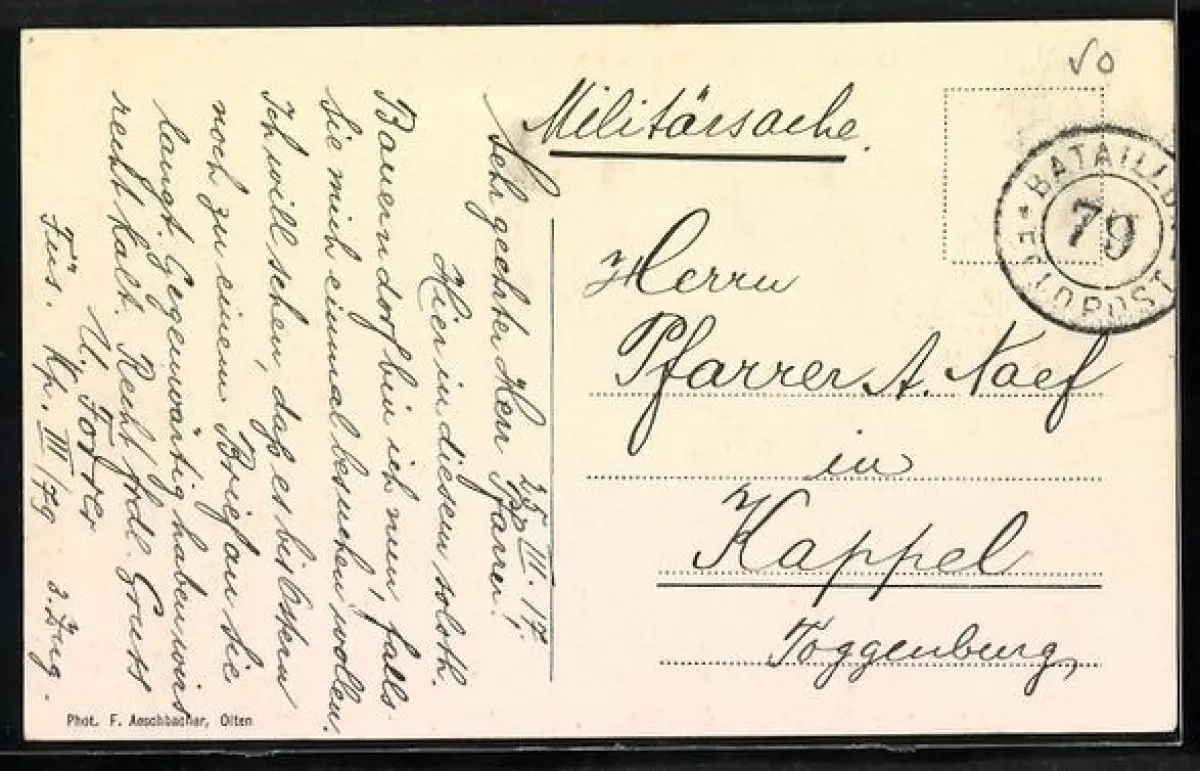 Militärsache.
SO
BATAILLON
79
FELDPOST
Herrn
Pfarrer A. Naef
in
Kappel
Toggenburg,
25. III. 17.
Sehr geehrter Herr Pfarrer!
Hier in diesem soloth.
Bauerndorf bin ich nun, falls
Sie mich einmal besuchen wollen.
Ich will sehen, daß es bis Ostern
noch zu einem Brief an Sie
langt. Gegenwärtig haben wirs
recht kalt. Recht frdl. Gruss
U. Forrer
Füs. Kp. III/79 3. Zug.
Phot. F. Aeschbacher, Olten